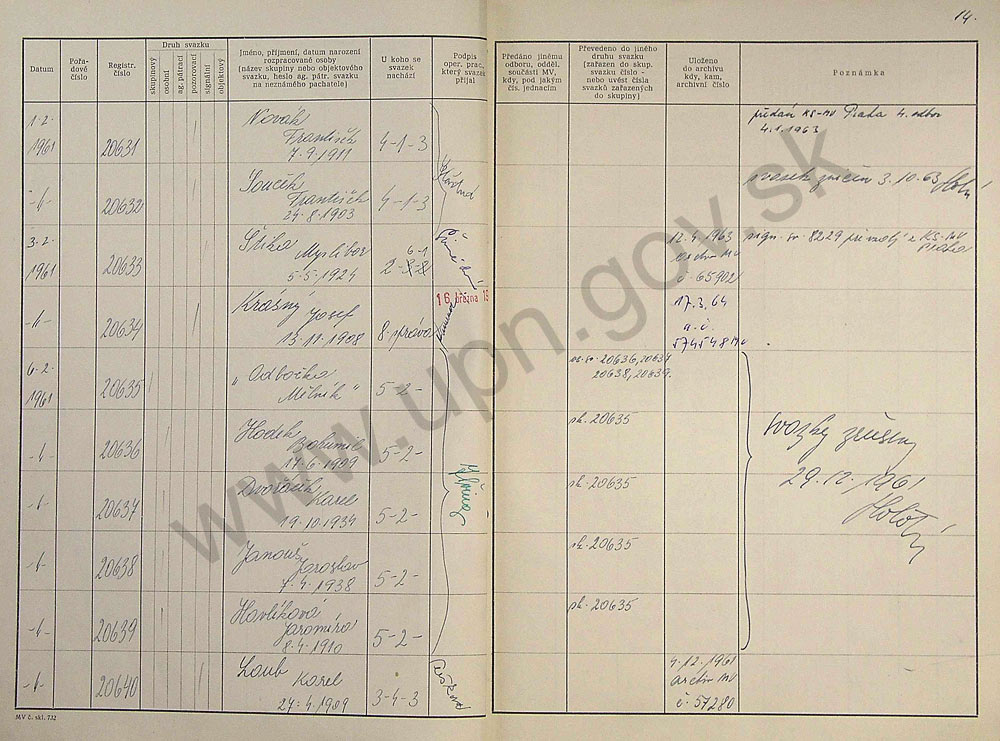 14.
Datum
Pořa-
dové
číslo
Registr.
číslo
Druh svazku
skupinový
osobní
ag. pátrací
pozorovací
signální
objektový
Jméno, příjmení, datum narození
rozpracované osoby
(název skupiny nebo objektového
svazku, heslo ag. pátr. svazku
na neznámého pachatele)
U koho se
svazek
nachází
Podpis
oper. prac.,
který svazek
přijal
Předáno jinému
odboru, odděl.,
součásti MV,
kdy, pod jakým
čís. jednacím
Převedeno do jiného
druhu svazku
(zařazen do skup.
svazku číslo -
nebo uvést čísla
svazků zařazených
do skupiny)
Uloženo
do archivu
kdy, kam,
archivní číslo
Poznámka
1-2-
1961
20631
Novák
František
7-9-1911
4-1-3
předán KS-MV Praha 4. odbor
4.1.1963
-"-
20632
Souček
František
24-8-1903
4-1-3
svazek zničen 3.10.63
3-2-
1961
20633
Šilha Myslibor
5-5-1924
6-1
12.4.1963
archiv MV
č. 65902
sign. sv. 8229 KS-MV
Praha
-"-
20634
Krásný Josef
13-11-1908
8-správa
16. března 19
17.3.64
a.č.
574548 MV
6-2-
1961
20635
"Odbočka
Mělník"
5-2-
20636, 20637
20638, 20639.
-"-
20636
Hodek
Bohumil
17-6-1909
5-2-
sk. 20635
-"-
20637
Dvořáček
Karel
19-10-1934
5-2-
sk. 20635
-"-
20638
Janouš
Jaroslav
7-4-1938
5-2-
sk. 20635
-"-
20639
Havlíková
Jaromíra
8-4-1910
5-2-
sk. 20635
svazky zrušeny
29.12.1961
-"-
20640
Loub
Karel
27-4-1909
3-4-3
4.12.1961
archiv MV
č. 57280
MV č. skl. 732
www.upn.gov.sk